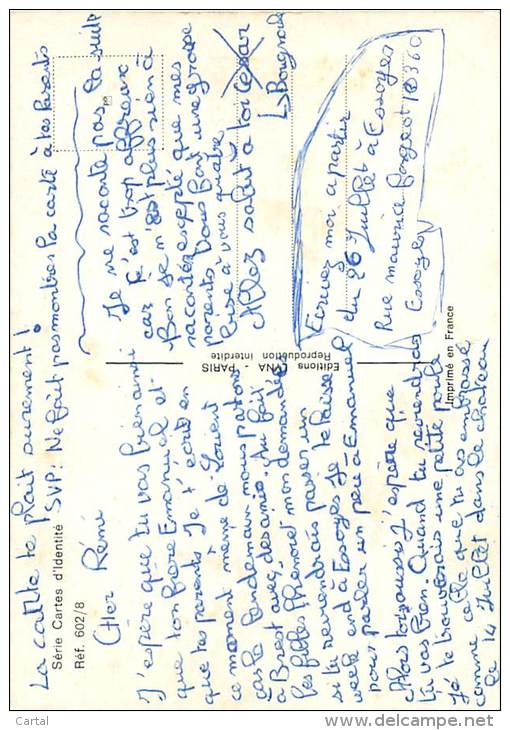 La carte te plait surement !
Série Cartes d'Identité
SVP : Ne fait pas montrer la carte à tes parents
Réf. 602/8
Cher Rémi
J'espère que tu vas bien ainsi
que ton frère Emanuel et
que tes parents. Je t'écrit en
ce moment même de Lorient
car le lendemain nous partons
a Brest avec des amis. Au fait
les filles Phenoret mon demandée
si tu reviendrais passer un
week end à Essoyes. Je te laisse
pour parler un peu à Emanuel
Alors toi aussi j'espère que
tu vas bien. Quand tu reviendras
Je te trouverais une petite poule
comme celle que tu as embrassé
le 14 Juillet dans le chateau
Editions LYNA - PARIS
Reproduction interdite
Je ne raconte pas la suite
car c'est trop affreux
Bon je n'est plus rien à
racontés exepté que mes
parents vous font une grosse
bise à vous quatre
Allez salut à toi
L. Bougnol
Ecrivez moi a partir
du 26 Juillet à Essoyes
Rue maurice Forgeot 10360
Essoyes
Imprimé en France
Cartal
www.delcampe.net